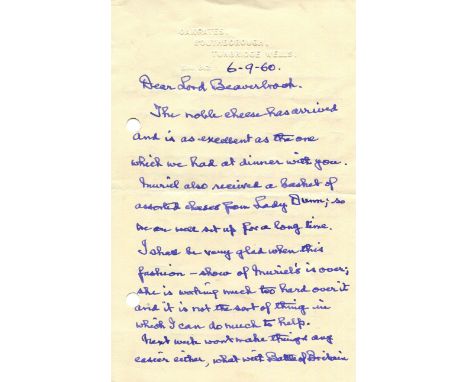 OAKGATES,
SOUTHBOROUGH,
TUNBRIDGE WELLS.
6-9-60.
Dear Lord Beaverbrook.
The noble cheese has arrived
and is as excellent as the one
which we had at dinner with you.
Muriel also received a basket of
assorted cheeses from Lady Dunn; so
we are well set up for a long time.
I shall be very glad when this
fashion-show of Muriel's is over;
she is working much too hard over it
and it is not the sort of thing in
which I can do much to help.
Next week wont make things any
easier either, what with Battle of Britain